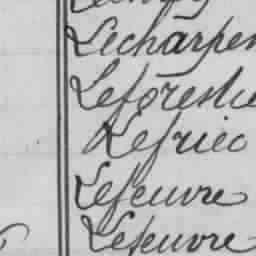 Lecharpen
Leforestie
Lefriec
Lefeuvre
Lefeuvre